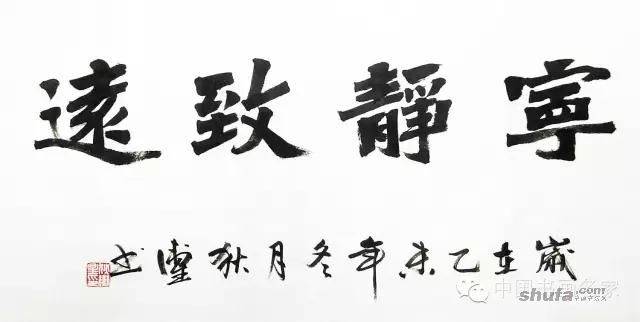 寧靜致遠
歲在乙未年冬月狄鏖书
中国书画名家
shufa.com